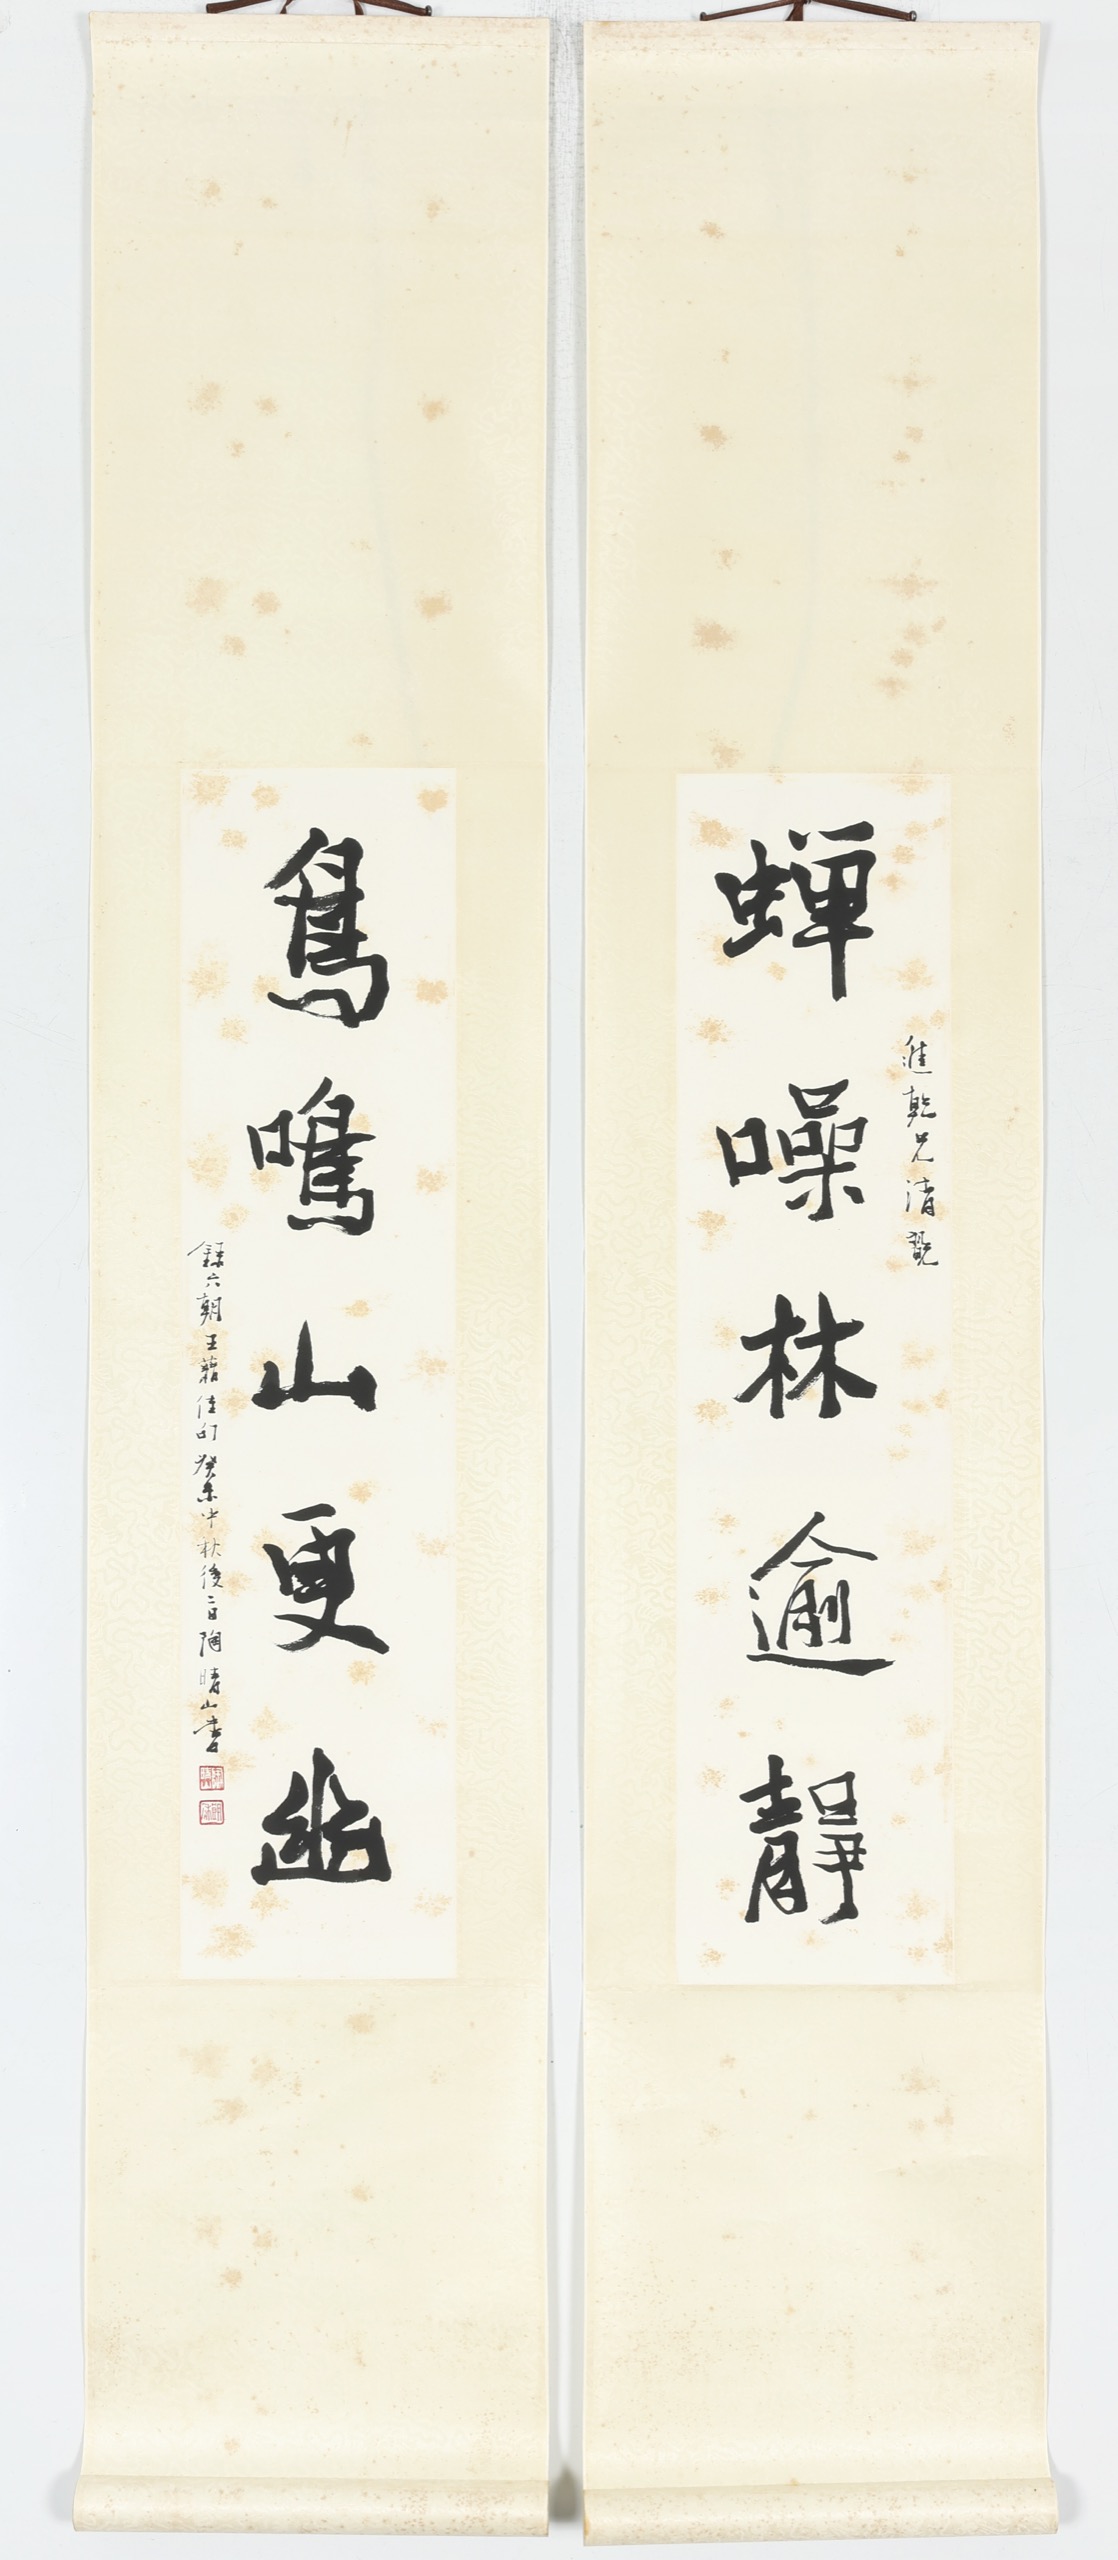 蝉噪林逾靜
進乾兄清覽
鳥鳴山更幽
錄六朝王藉佳句 癸未中秋後二日陶晴山書